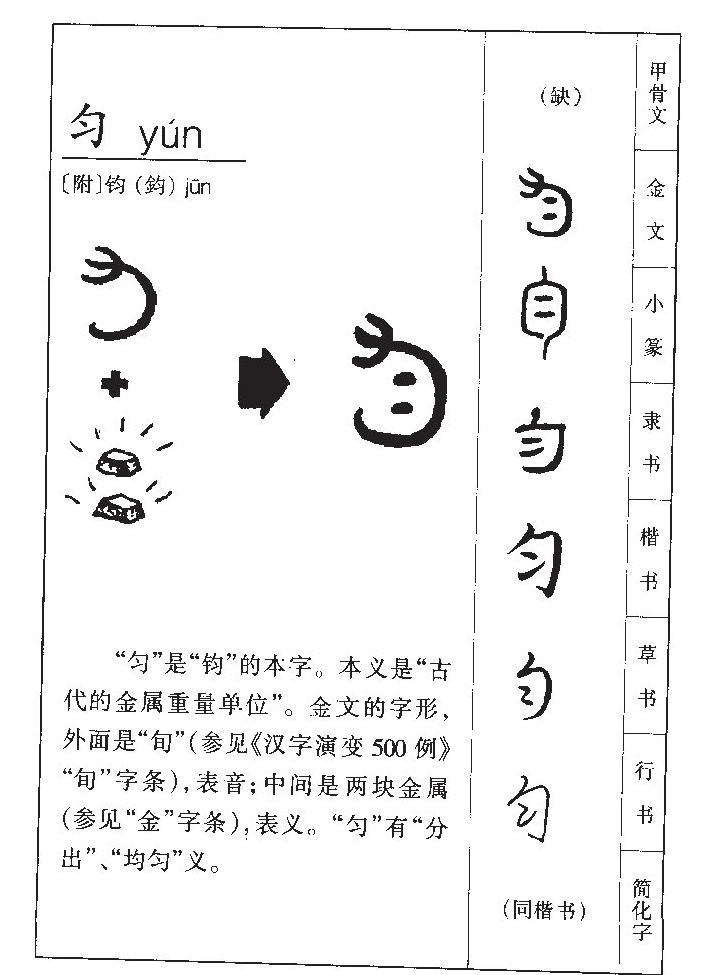 匀 yún
〔附〕钧（鈞）jūn
“匀”是“钧”的本字。本义是“古
代的金属重量单位”。金文的字形，
外面是“旬”（参见《汉字演变 500 例》
“旬”字条），表音；中间是两块金属
（参见“金”字条），表义。“匀”有“分
出”、“均匀”义。
甲骨文
（缺）
金文
匀
小篆
匀
隶书
匀
楷书
匀
草书
匀
行书
匀
简化字
（同楷书）